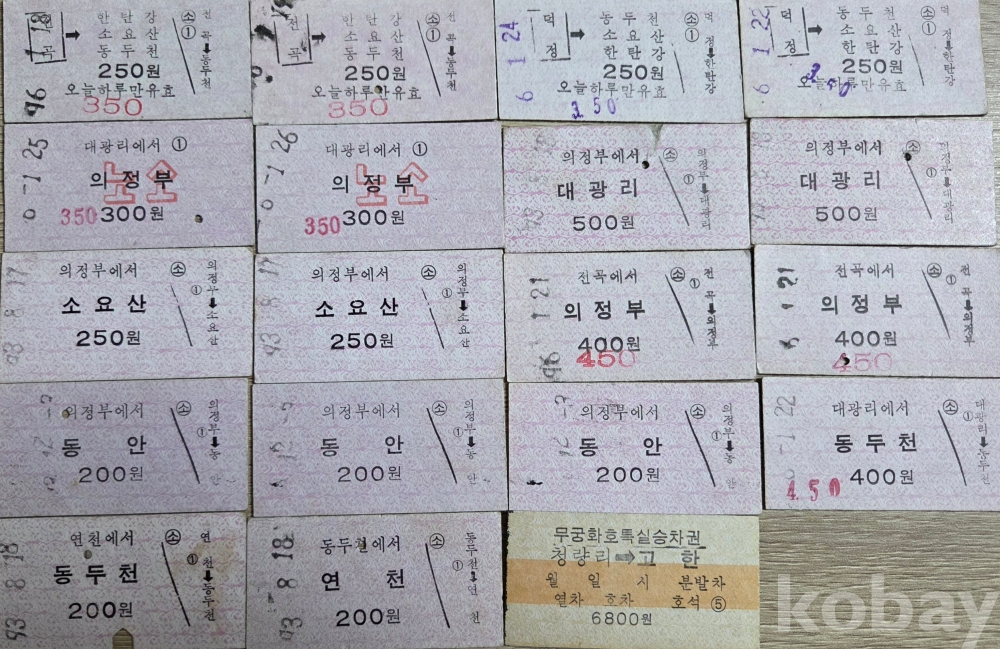 전곡 → 한탄강 소요산 동두천
250원
오늘하루만유효
350
소 ①
전곡→동두천
96 1 18
전곡 → 한탄강 소요산 동두천
250원
오늘하루만유효
350
소 ①
전곡→동두천
덕정 → 동두천 소요산 한탄강
250원
오늘하루만유효
350
소 ①
덕정→한탄강
6 1 24
덕정 → 동두천 소요산 한탄강
250원
오늘하루만유효
소 ①
덕정→한탄강
6 1 22
대광리에서 ①
의정부
노소
350 300원
1 25
대광리에서 ①
의정부
노소
350 300원
1 26
의정부에서
대광리
500원
소 ①
의정부→대광리
의정부에서
대광리
500원
소 ①
→대광리
의정부에서
소요산
250원
소 ①
의정부→소요산
93 8 17
의정부에서
소요산
250원
소 ①
의정부→소요산
93 8 17
전곡에서
의정부
400원
450
소 ①
전곡→의정부
96 1 21
전곡에서
의정부
400원
450
소 ①
전곡→의정부
1 21
의정부에서
동안
200원
소 ①
의정부→동안
의정부에서
동안
200원
소 ①
의정부→동안
의정부에서
동안
200원
소 ①
의정부→동안
대광리에서
동두천
400원
4.50
소 ①
대광리→동두천
1 22
연천에서
동두천
200원
소 ①
연천→동두천
93 8 18
동두천에서
연천
200원
소 ①
동두천→연천
93 8 18
무궁화호특실승차권
청량리→고한
월 일 시 분발차
열차 호차 호석 ⑤
6800원
kobay